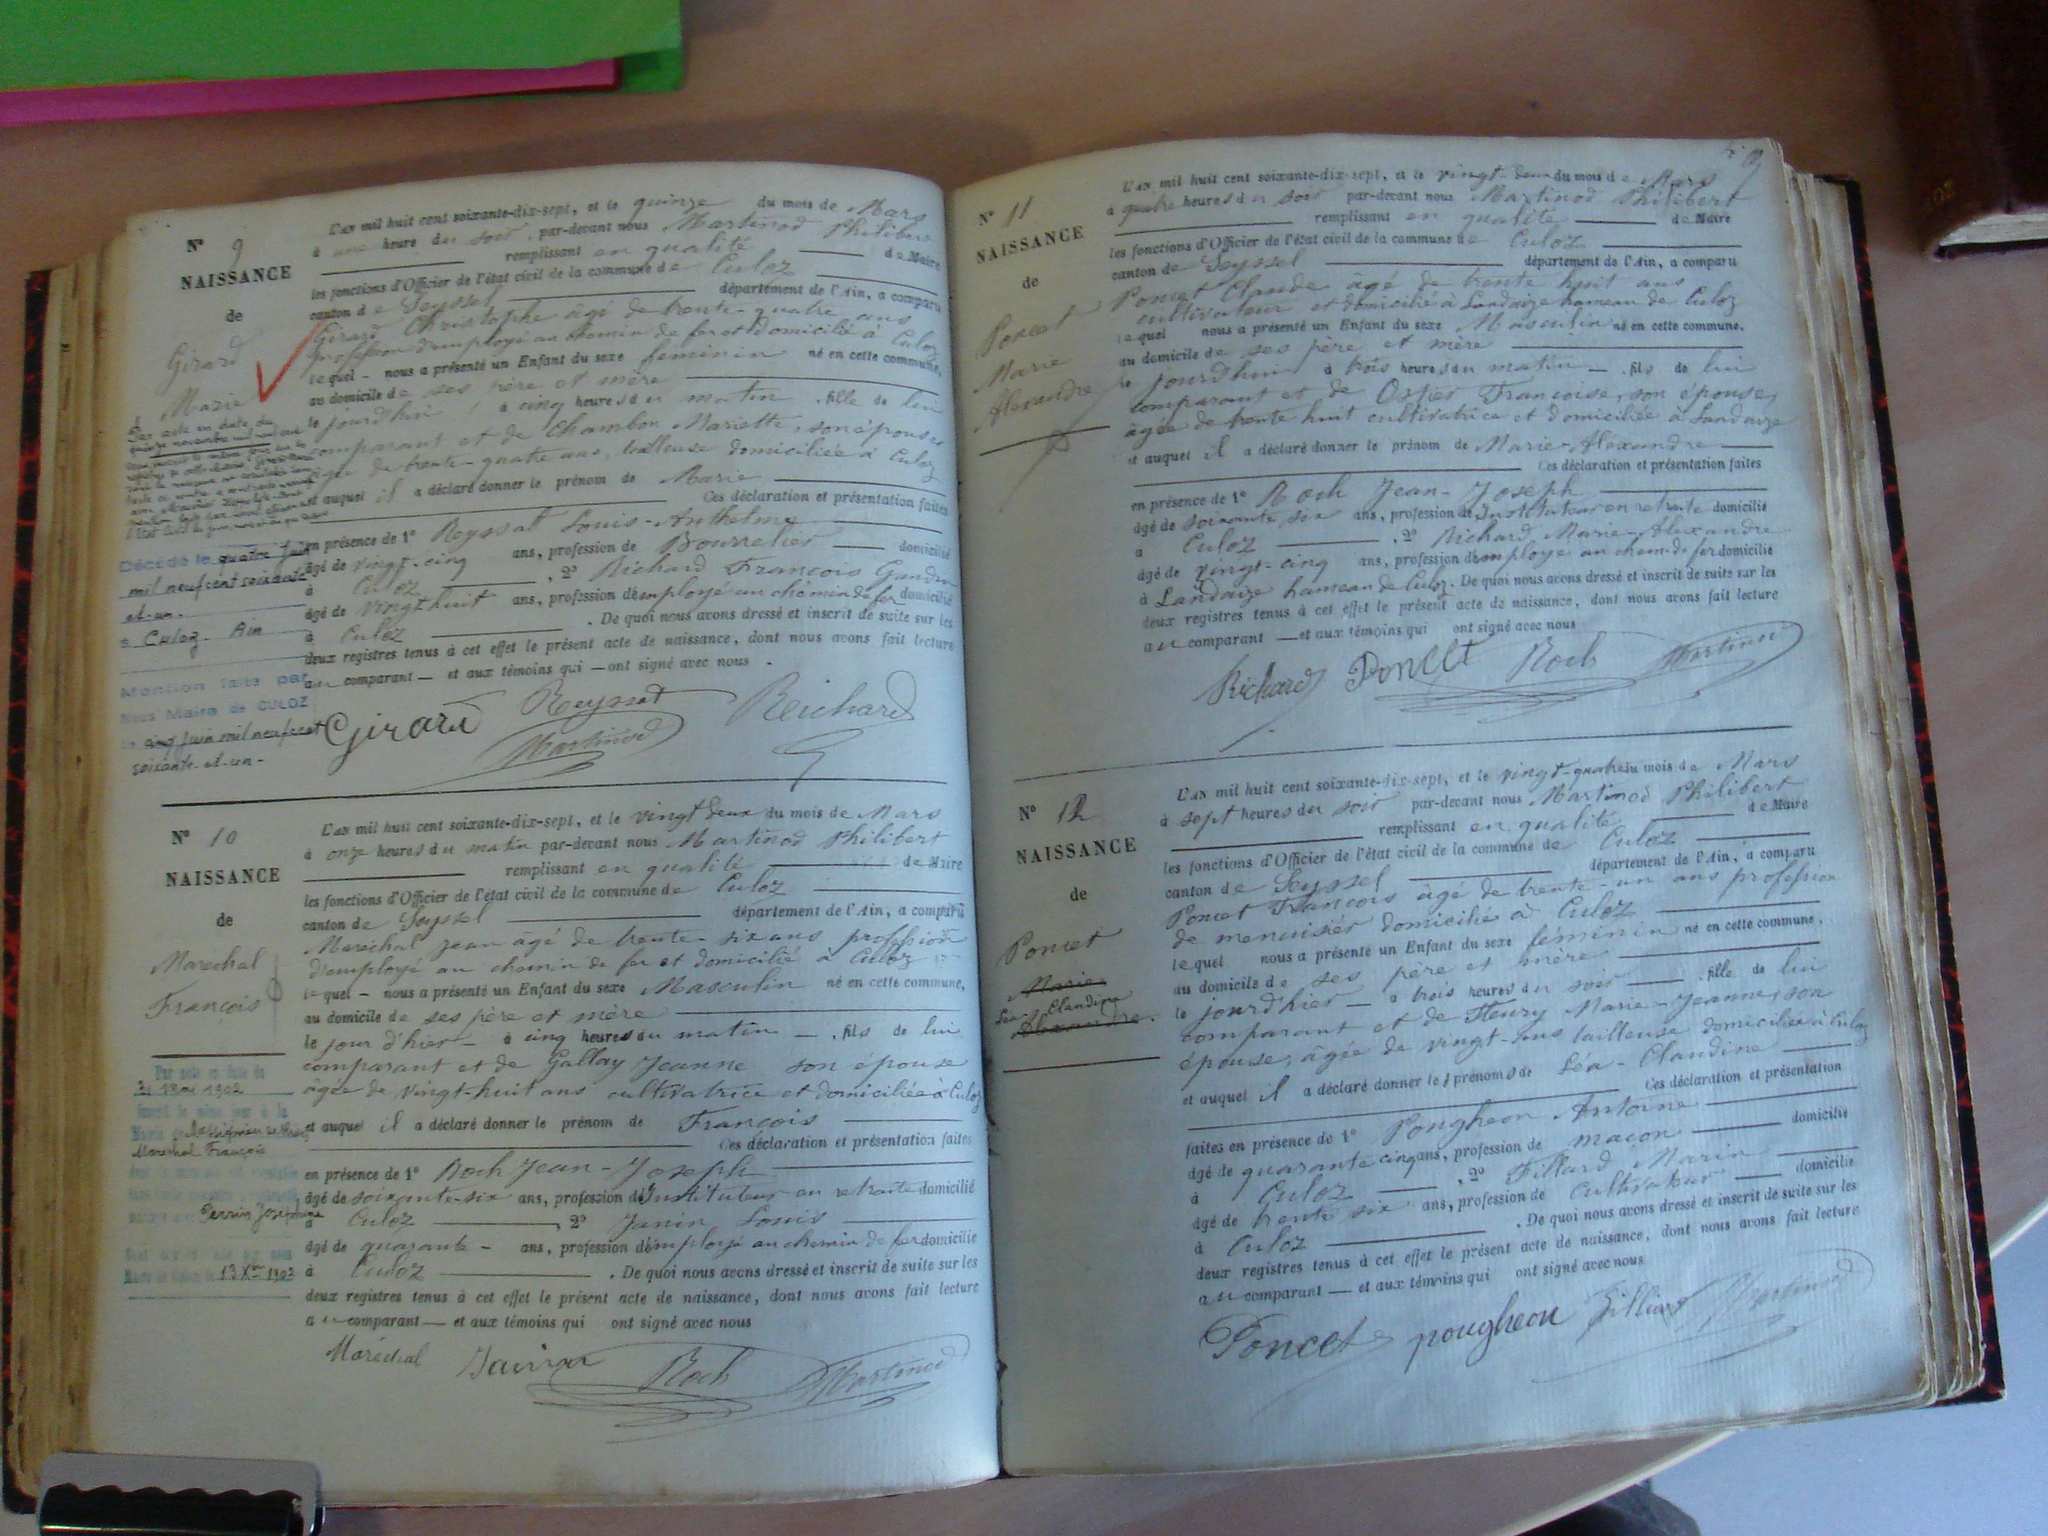 N° 9
NAISSANCE
de
Girard
Marie
Par acte en date du
quinze novembre mil neuf cent
Décédé le quatre Juin
mil neuf cent soixante
et-un.
à Culoz - Ain
Mention faite par
Nous Maire de CULOZ
le cinq Juin mil neuf cent
soixante-et-un-
L'AN mil huit cent soixante-dix-sept, et le quinze du mois de Mars
à une heure du soir, par-devant nous Martinod Philibert
remplissant en qualité de Maire
les fonctions d'Officier de l'état civil de la commune de Culoz
canton de Seyssel département de l'Ain, a comparu
Girard Christophe âgé de trente-quatre ans
profession d'employé au chemin de fer et domicilié à Culoz
lequel - nous a présenté un Enfant du sexe féminin né en cette commune,
au domicile de ses père et mère
le jourd'hui à cinq heures du matin . fille de lui
comparant et de Chambon Mariette, son épouse
âgée de trente-quatre ans, tailleuse domiciliée à Culoz
et auquel il a déclaré donner le prénom de Marie
Ces déclaration et présentation faites
en présence de 1° Reyssat Louis-Anthelme
âgé de vingt-cinq ans, profession de Bourrelier domicilié
à Culoz , 2° Richard François
âgé de vingt huit ans, profession d'employé au chemin de fer domicilié
à Culoz . De quoi nous avons dressé et inscrit de suite sur les
deux registres tenus à cet effet le présent acte de naissance, dont nous avons fait lecture
au comparant — et aux témoins qui — ont signé avec nous .
Girard Reyssat Reichard
Martinod
N° 10
NAISSANCE
de
Maréchal
François
Par acte en date du
31 Mai 1902
inscrit le même jour à la
Maréchal François
Perrin Josephine
13 Xbre 1902
L'AN mil huit cent soixante-dix-sept, et le vingt deux du mois de Mars
à onze heures du matin par-devant nous Martinod Philibert
remplissant en qualité de Maire
les fonctions d'Officier de l'état civil de la commune de Culoz
canton de Seyssel département de l'Ain, a comparu
Maréchal Jean âgé de trente-six ans profession
d'employé au chemin de fer et domicilié à Culoz
lequel - nous a présenté un Enfant du sexe Masculin né en cette commune,
au domicile de ses père et mère
le jour d'hier — à cinq heures du matin — . fils de lui
comparant et de Gallay Jeanne son épouse
âgée de vingt-huit ans cultivatrice et domiciliée à Culoz
et auquel il a déclaré donner le prénom de François
Ces déclaration et présentation faites
en présence de 1° Roch Jean-Joseph
âgé de soixante-six ans, profession d'Instituteur en retraite domicilié
à Culoz , 2° Janin Louis
âgé de quarante - ans, profession d'employé au chemin de fer domicilié
à Culoz . De quoi nous avons dressé et inscrit de suite sur les
deux registres tenus à cet effet le présent acte de naissance, dont nous avons fait lecture
au comparant — et aux témoins qui ont signé avec nous
Maréchal Roch Martinod
N° 11
NAISSANCE
de
Poncet
Marie
Alexandre
L'AN mil huit cent soixante-dix-sept, et le vingt-deux du mois de Mars
à quatre heures du soir par-devant nous Martinod Philibert
remplissant en qualité de Maire
les fonctions d'Officier de l'état civil de la commune de Culoz
canton de Seyssel département de l'Ain, a comparu
Poncet Claude âgé de trente huit ans
cultivateur et domicilié à Landaize hameau de Culoz
lequel nous a présenté un Enfant du sexe Masculin né en cette commune,
au domicile de ses père et mère
le jourd'hui à trois heures du matin — . fils de lui
comparant et de Ostier Françoise, son épouse,
âgée de trente huit cultivatrice et domiciliée à Landaize
et auquel il a déclaré donner le prénom de Marie-Alexandre
Ces déclaration et présentation faites
en présence de 1° Roch Jean-Joseph
âgé de soixante six ans, profession de Instituteur en retraite domicilié
à Culoz , 2° Richard Marie-Alexandre
âgé de vingt-cinq ans, profession d'employé au chem. de fer domicilié
à Landaize hameau de Culoz. De quoi nous avons dressé et inscrit de suite sur les
deux registres tenus à cet effet le présent acte de naissance, dont nous avons fait lecture
au comparant — et aux témoins qui ont signé avec nous
Richard Poncet Roch Martinod
N° 12
NAISSANCE
de
Poncet
Marie
Léa Claudine
Alexandre.
L'AN mil huit cent soixante-dix-sept, et le vingt-quatre du mois de Mars
à sept heures du soir par-devant nous Martinod Philibert
remplissant en qualité de Maire
les fonctions d'Officier de l'état civil de la commune de Culoz
canton de Seyssel département de l'Ain, a comparu
Poncet François âgé de trente-un ans profession
de menuisier domicilié à Culoz
lequel nous a présenté un Enfant du sexe féminin né en cette commune,
au domicile de ses père et mère
le jourd'hier — à trois heures du soir — . fille de lui
comparant et de Fleury Marie-Jeanne, son
épouse, âgée de vingt-ans tailleuse domiciliée à Culoz
et auquel il a déclaré donner les prénoms de Léa-Claudine
Ces déclaration et présentation
faites en présence de 1° Pongheon Antoine
âgé de quarante cinq ans, profession de maçon domicilié
à Culoz , 2° Fillard Marin
âgé de trente six ans, profession de cultivateur domicilié
à Culoz . De quoi nous avons dressé et inscrit de suite sur les
deux registres tenus à cet effet le présent acte de naissance, dont nous avons fait lecture
au comparant — et aux témoins qui ont signé avec nous
Poncet pougheon Fillard Martinod